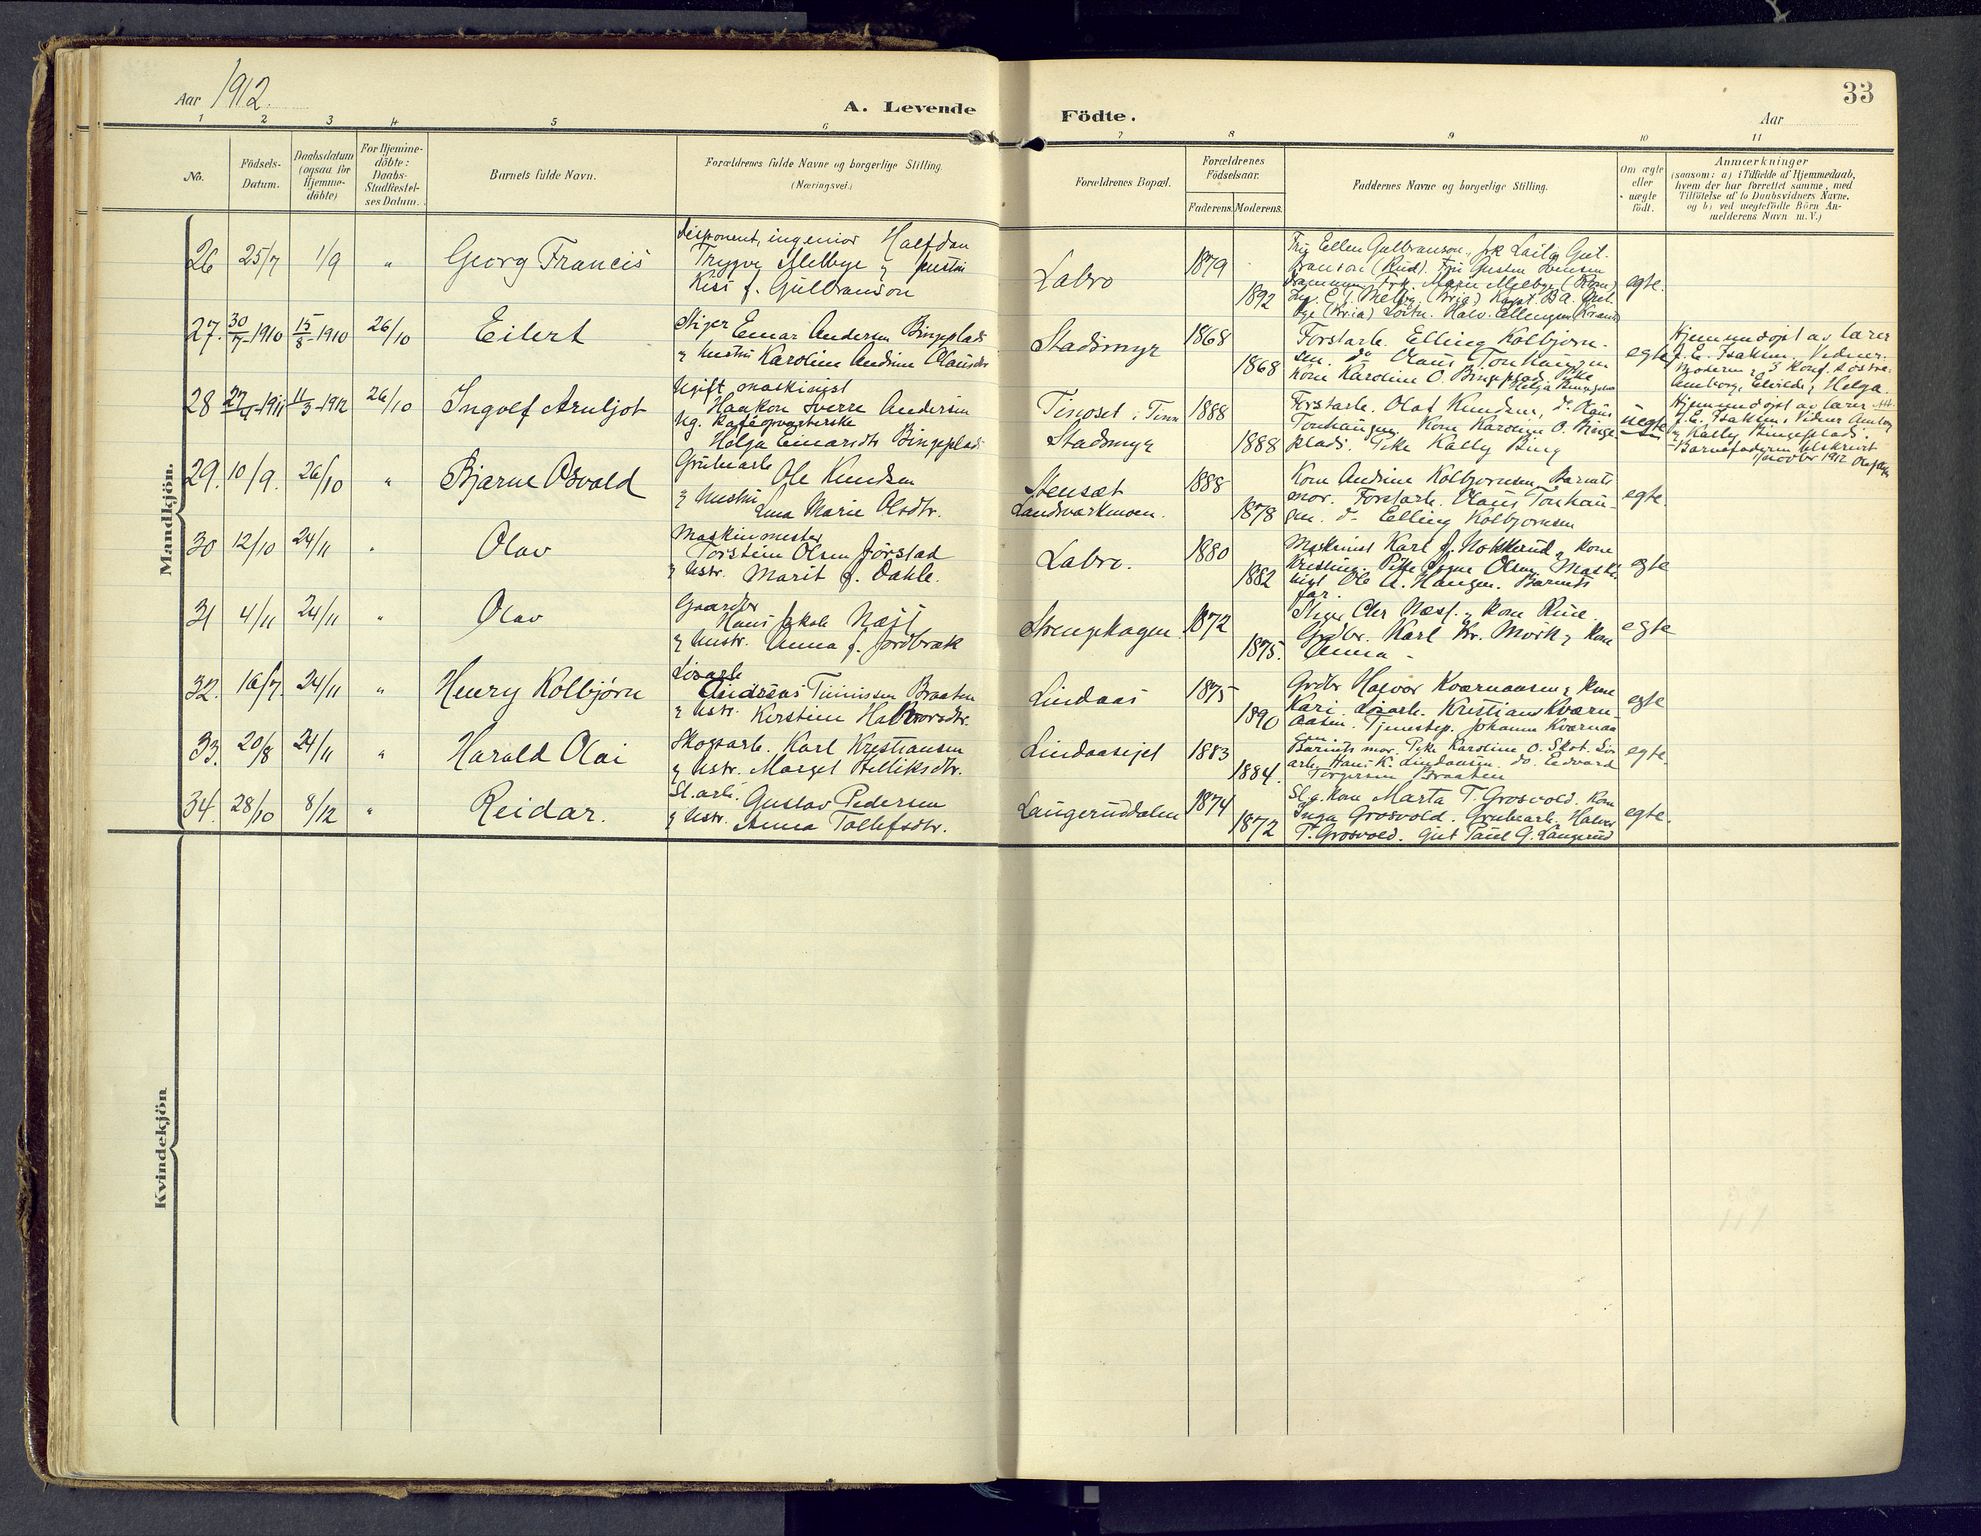 33
Aar 1912.
A. Levende Födte.
Aar
1 2 3 4 5 6 7 8 9 10 11
No.
Födsels-
Datum.
Daabsdatum
(ogsaa for
Hjemme-
döbte)
For Hjemme-
döbte:
Daabs-
Stadfæstel-
ses Datum.
Barnets fulde Navn.
Forældrenes fulde Navne og borgerlige Stilling.
(Næringsvei.)
Forældrenes Bopæl.
Forældrenes
Födselsaar.
Faderens. Moderens.
Faddernes Navne og borgerlige Stilling.
Om ægte
eller
uægte
födt.
Anmærkninger
(saasom: a) i Tilfælde af Hjemmedaab,
hvem der har forrettet samme, med
Tilföielse af to Daabsvidners Navne.
og b) ved uægtefödte Börn An-
melderens Navn m. V.)
Mandkjön.
26 25/7 1/9 " Georg Francis
Disponent, ingeniør Halfdan
Trygve Melbye & hustru
Kiss f. Gulbranson
Labro
1879
1892
Fru Ellen Gulbranson, frk Laila Gul-
branson (Rud).
egte.
27. 30/7-1910 15/8-1910 26/10 Eilert
Stiger Einar Andersen Bingeplads
& hustru Karoline Andrine Olausdtr
Stadsmyr
1868
1868
Forstarb. Elling Kolbjørn-
sen. do Olaus Tonhaugen
kone Karoline O. Bingeplads. Pike
Helga Bingeplads
egte
Hjemmedøpt av lærer
J. E. Isaksen. Vidner:
Moderen & 3 konf. søstre:
Amborg, Elvilde, Helga.
28 27/4-1911 11/3-1912 26/10 Ingolf Arnljot
Ugift maskinist
Haakon Sverre Andersen
Ug. kafeopvarterske
Helga Einarsdtr Bingeplads
Tinoset i Tinn
Stadsmyr
1888
1888
Forstarb. Olaf Knudsen, do Olaus
Tonhaugen, Kone Karoline O. Binge-
plads. Pike Kally Bing
uegte
Hjemmedøpt av lærer
J. E. Isaksen. Vidner Amborg
& Kally Bingeplads.
Barnefaderen tilskrevet
1912
29. 10/9. 26/10 " Bjarne Osvald
Grubearb.
Ole Knudsen
& hustru
Lina Marie Olsdtr.
Stensæt
Landsværkmoen.
1888
1878
Kone Andrine Kolbjørnsen. Barnets
mor. Forstarb. Olaus Tonhau-
gen. do Elling Kolbjørnsen
egte.
30 12/10 24/11 " Olav
Maskinmester
Torstein Olsen Jørstad
& hstr. Marit f. Dahle.
Labro.
1880
1882
Maskinist Karl J. Hokkerud & kone
Kristine. Pike Signe Olsen. Maski-
nist Ole A. Haugen. Barnets
far.
egte
31 4/11 24/11 " Olav
Gaardbr
Hans Jakob Næss
& hustr. Anna f. Jordbræk
Strengehagen.
1872
1875.
Stiger Chr Næss. & kone Rine.
Grdbr. Karl Kr. Mørk & kone
Anna -
egte
32. 16/7. 24/11 " Henry Kolbjørn
Løsarb
Andreas Tinnissen Braaten
& hstr. Kirstine Halvorsdtr.
Lindaas
1875
1890
Grdbr Halvor Kværnaasen & kone
Kari. Løsarb. Kristian Kværn-
aasen. Tjenestep. Johanne Kværnaa-
sen.
egte
33. 20/8 24/11 " Harald Olai
Skogsarb. Karl Kristiansen
& hstr. Margel Helliksdtr.
Lindaaseiet
1883
1884.
Barnets mor. Pike Karoline O. Skot. Løs-
arb. Hans K. Lindaasen. do. Edvard
Torgersen Braaten
egte.
34. 28/10 8/12 " Reidar.
Sl.arb. Gustav Pedersen
& hstr. Anna Tollefsdtr.
Laugeruddalen
1874
1872
Sl.g. kone Marta T. Grosvold. Kone
Inga Grosvold. Grubearb. Halvor
T. Grosvold. Gut Paul G. Laugerud
egte.
Kvindekjön